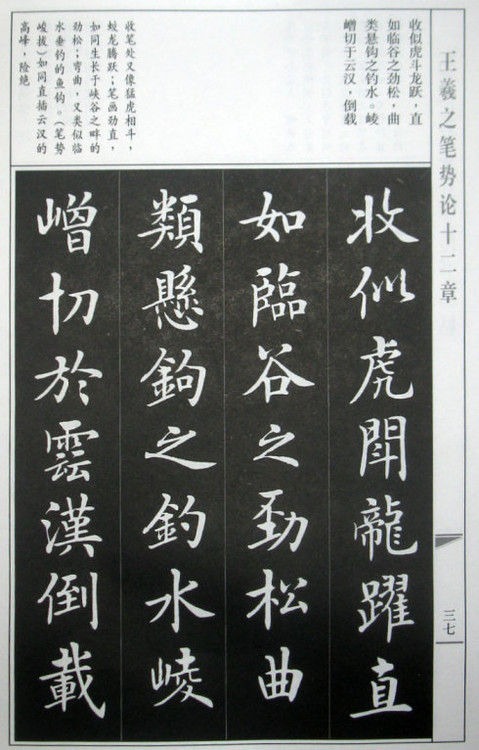 王羲之笔势论十二章
三七
收似虎斗龙跃，直
如临谷之劲松，曲
类悬钩之钓水。崚
嶒切于云汉，倒载
收笔处又像猛虎相斗，
蛟龙腾跃；笔画劲直，
如同生长于峡谷之畔的
劲松；弯曲，又类似临
水垂钓的鱼钩。（笔势
峻拔）如同直插云汉的
高峰，险绝
收似虎閗龍躍直
如臨谷之勁松曲
類懸鉤之釣水崚
嶒切於雲漢倒載